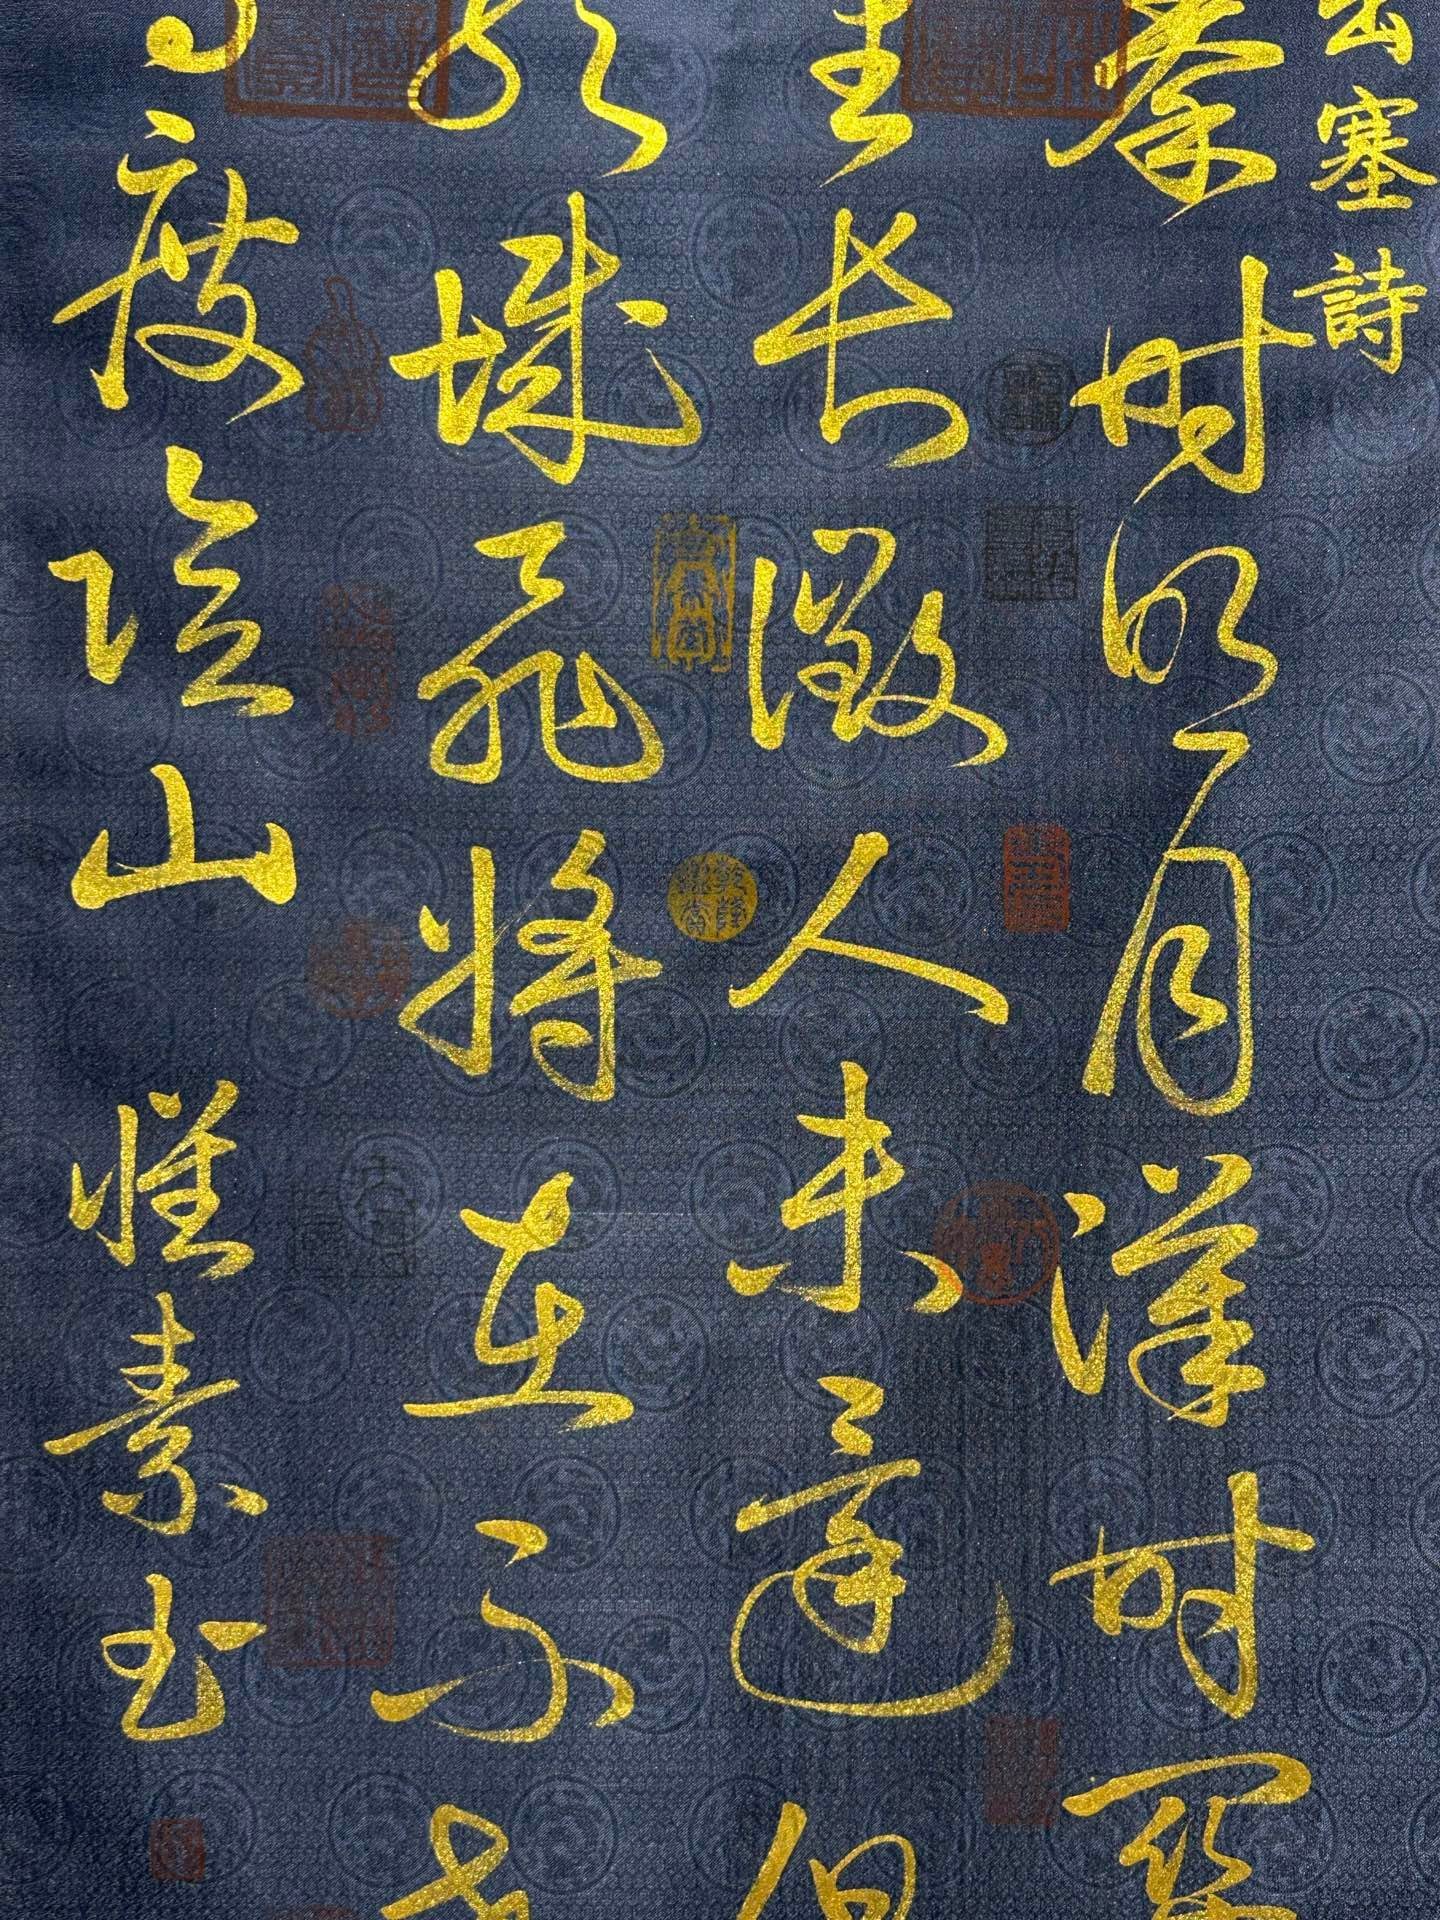 出塞詩
秦時明月漢時關
里長徵人未還但
龍城飛將在不教
馬度陰山 懷素書